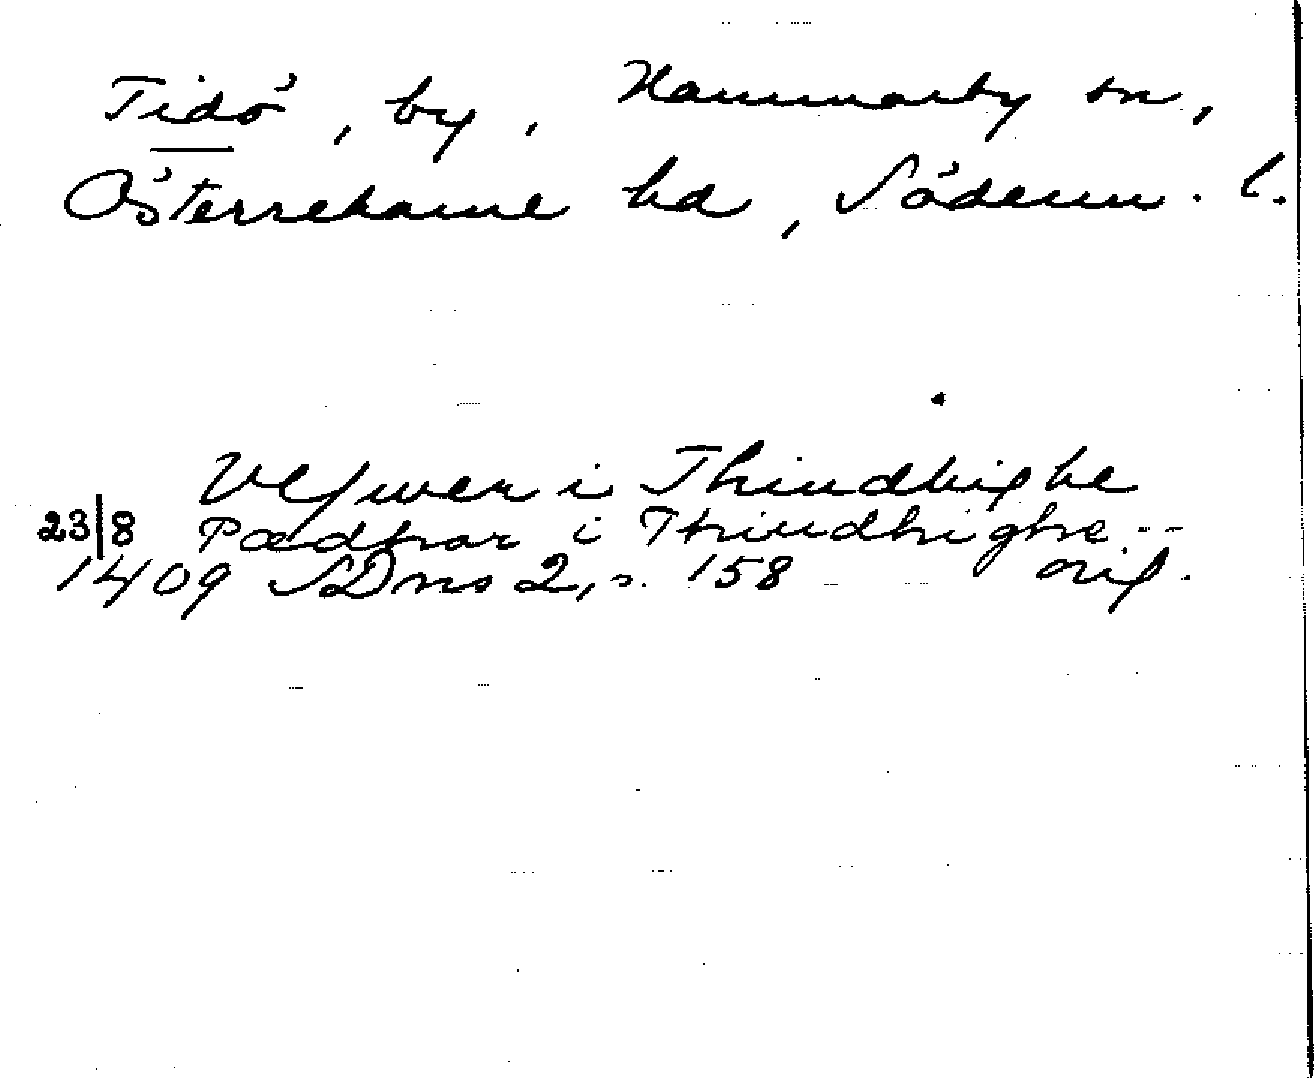 Tidö, by, Hammarby sn,
Österrekarne hd, Söderm. l.
Vlfwer i Thindhighe
23/8 Pædhar i Thindhighe --
1409 SDns 2, s. 158 orig.